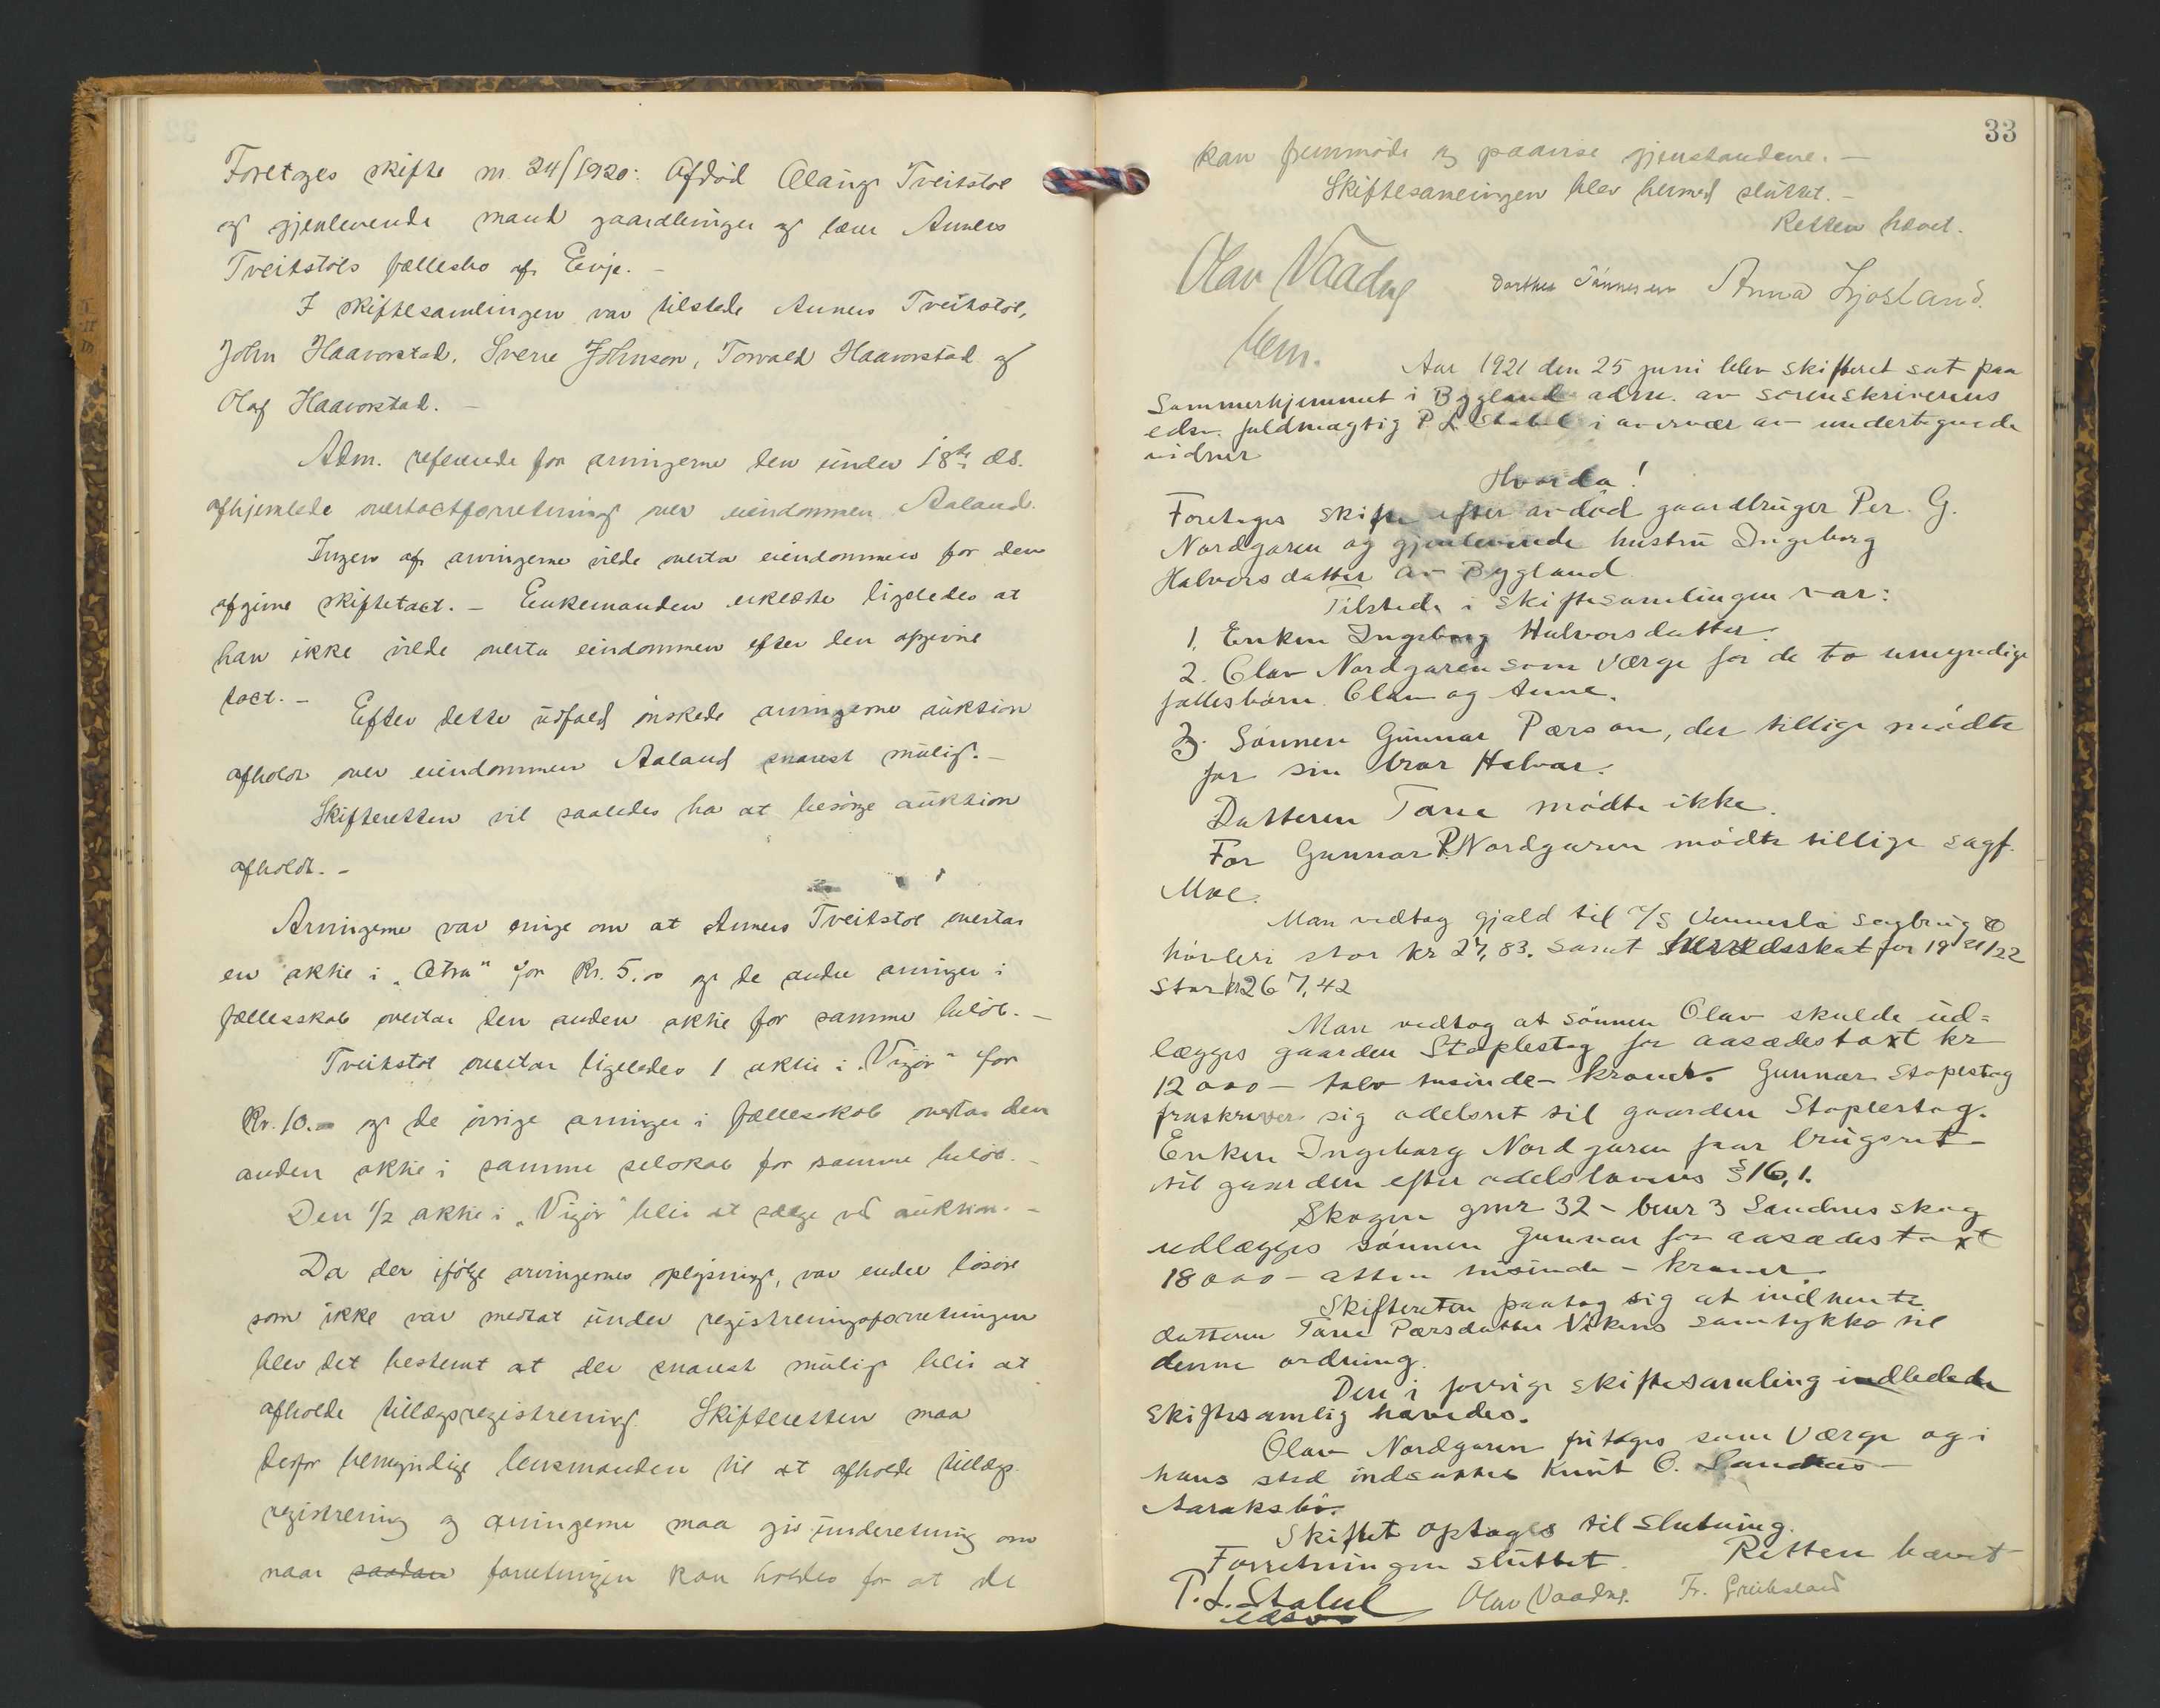 Foretoges skifte nr. 24/1920: Afdöd Olaug Tveitstöl
og gjenlevende mand gaardbruger og lærer Anners
Tveitstöls fællesbo af Evje. —
I skiftesamlingen var tilstede Anners Tveitstöl,
John Haavorstad, Sverre Johnson, Torvald Haavorstad og
Olaf Haavorstad. —
Adm. refererede for arvingerne den under 18de ds.
afhjemlede overtaxtforretning over eiendommen Aaland.
Ingen af arvingerne vilde overta eiendommen for den
afgivne skiftetaxt. — Enkemanden erklærte ligeledes at
han ikke vilde overta eiendommen efter den afgivne
taxt. —
Efter dette udfald önskede arvingerne auktion
afholdt over eiendommen Aaland snarest mulig. —
Skifteretten vil saaledes ha at besörge auktion
afholdt. —
Arvingerne var enige om at Anners Tveitstöl overtar
en aktie i "Otra" for Kr. 5.00 og de andre arvinger i
fællesskab overtar den anden aktie for samme belöb. —
Tveitstöl overtar ligeledes 1 aktie i "Vigör" for
Kr. 10.— og de övrige arvinger i fællesskab overtar den
anden aktie i samme selskab for samme belöb. —
Den 1/2 aktie i "Vigör" blir at sælge ved auktion. —
Da der ifölge arvingernes oplysning, var endel lösöre
som ikke var medtat under registreringsforretningen
blev det bestemt at der snarest mulig blir at
afholde tillægsregistrering. Skifteretten maa
derfor bemyndige lensmanden til at afholde tillægs-
registrering og arvingerne maa gis underetning om
naar saadan forretningen kan holdes for at de
33
kan fremmöde og paavise gjenstandene. —
Skiftesamlingen blev hermed sluttet. —
Retten hævet.
Olav Vaadne Dorthea Tönnesen Anna Ljosland.
Aar 1921 den 25 juni blev skifteret sat paa
Sommerhjemmet i Bygland adm. av sorenskriverens
edsv. fuldmægtig P. L. Stabel i overvær av undertegnede
vidner
Hvorda!
Foretoges skifte efter avdöd gaardbruger Per. G.
Nordgaren og gjenlevende hustru Ingeborg
Halvorsdatter av Bygland.
Tilstede i skiftesamlingen var:
1. Enken Ingeborg Halvorsdatter.
2. Olav Nordgaren som værge for de to umyndige
fællesbörn. Olav og Anne.
3. Sönnen Gunnar Pærson, der tillige mödte
for sin bror Halvor.
Datteren Tone mödte ikke.
For Gunnar P. Nordgaren mödte tillige sagf.
Moe.
Man vedtog gjæld til A/S Vennesla Sagbrug &
hövleri stor kr 27,83. samt herredsskat for 1921/22
stor kr 267,42
Man vedtog at sönnen Olav skulde ud=
lægges gaarden Staplestog for aasædestaxt kr
12000 — tolv tusinde — kroner. Gunnar Stapestog
fraskriver sig odelsret til gaarden Staplestog.
Enken Ingeborg Nordgaren faar brugsret
til gaarden efter odelslovens § 16, 1.
Skogen gnr 32 - bnr 3 Sandnes skog
udlægges sönnen Gunnar for aasædestaxt
18000 — atten tusinde — kroner.
Skifteretten paatog sig at indhente
datteren Tone Pærsdatter Vikens samtykke til
denne ordning.
Den i forrige skiftesamling indledede
skiftesamlig hævedes.
Olav Nordgaren fritages som værge og i
hans sted indsættes Knut O. Sandnes
Aaraksbö.
Skiftet optages til slutning.
Forretningen sluttet. Retten hævet
P. L. Stabel Olav Vaadne. Tr. Greibsland
edsv